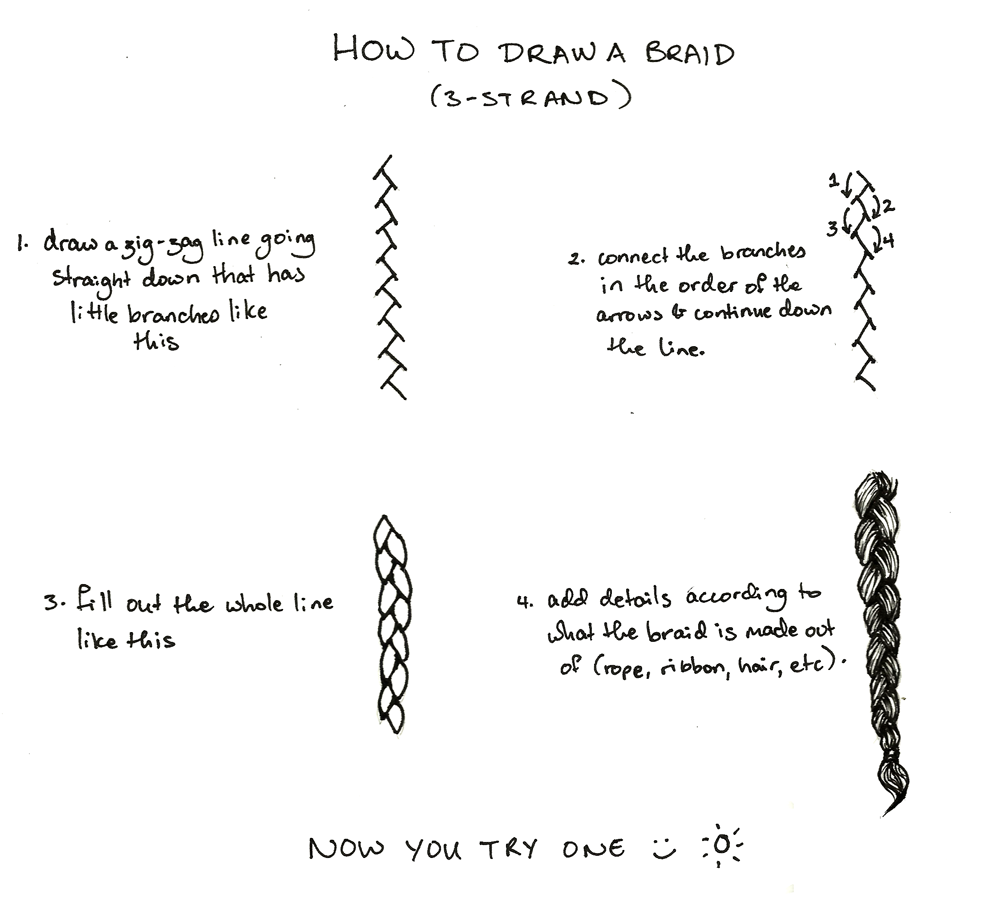 HOW TO DRAW A BRAID
(3-STRAND)
1. draw a zig-zag line going
straight down that has
little branches like
this
1
2
3
4
2. connect the branches
in the order of the
arrows & continue down
the line.
3. fill out the whole line
like this
4. add details according to
what the braid is made out
of (rope, ribbon, hair, etc).
NOW YOU TRY ONE :)